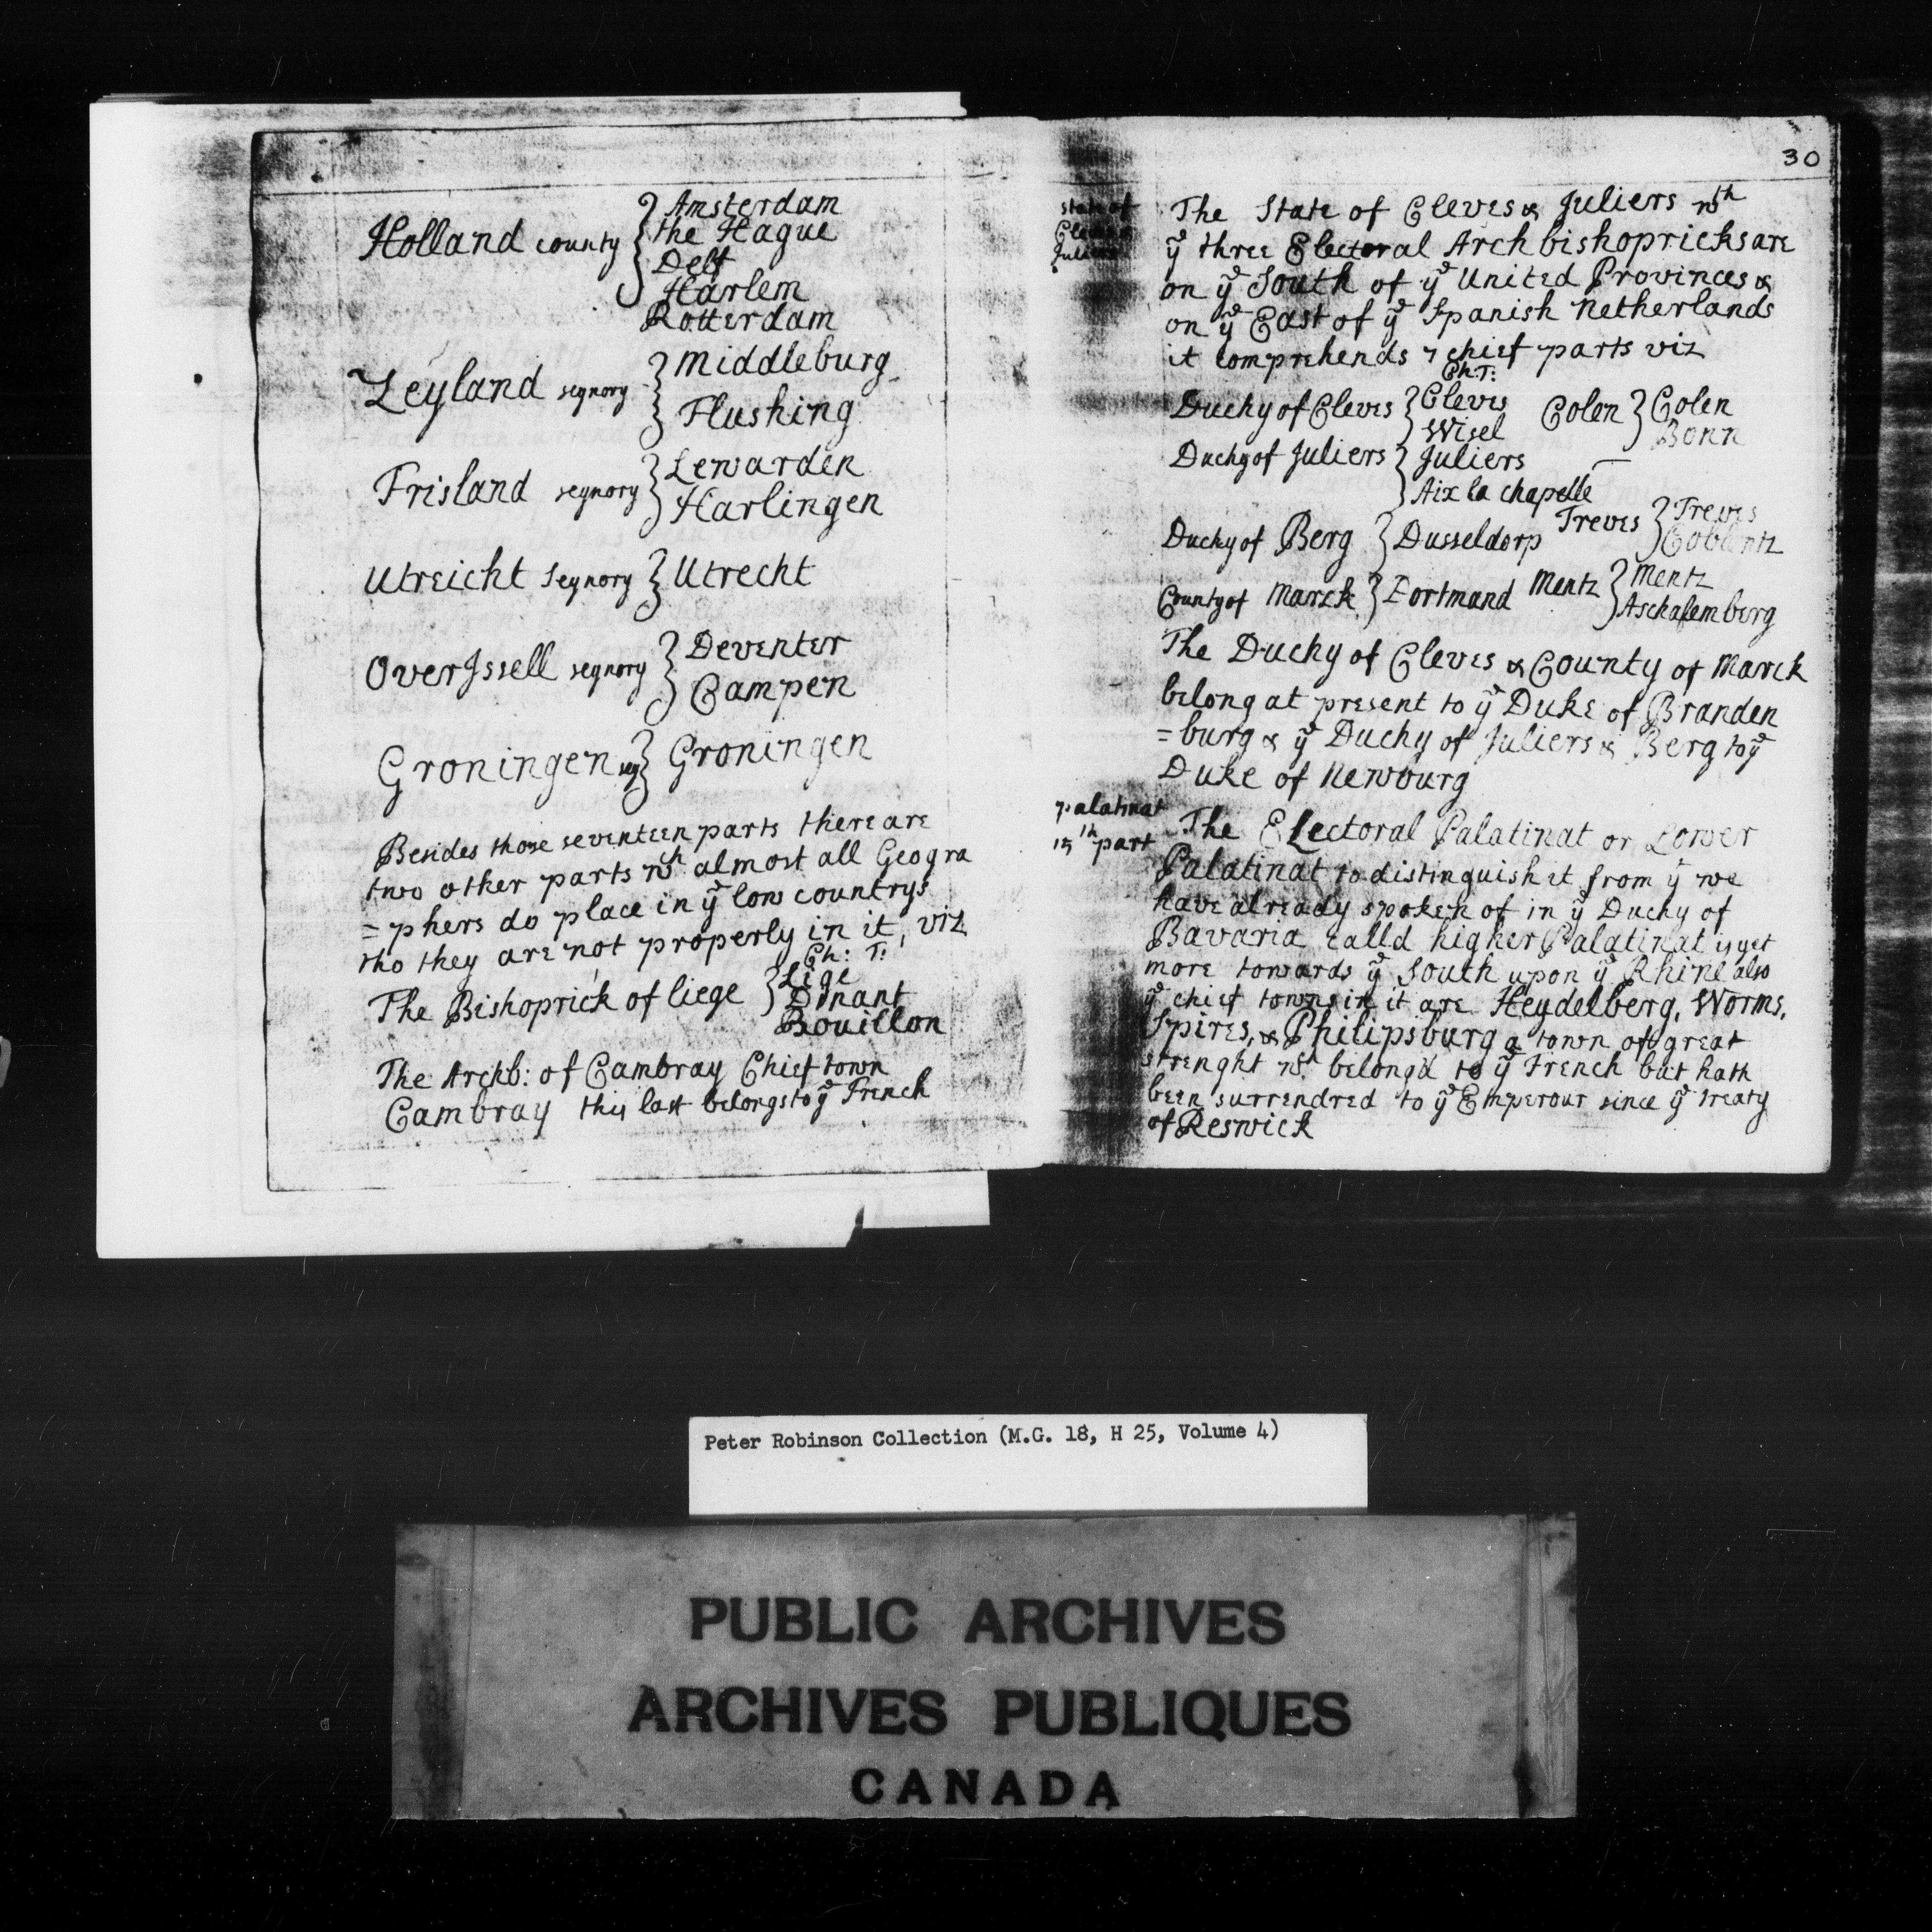 Holland county } Amsterdam
the Hague
Delf
Harlem
Rotterdam
Zeyland segnory } Middleburg
Flushing
Frisland segnory } Lewarden
Harlingen
Utreicht Segnory } Utrecht
OverIssell segnory } Deventer
Campen
Groningen seg } Groningen
Besides those seventeen parts there are
two other parts wch almost all Geogra
=phers do place in ye low countrys
tho they are not properly in it, viz
Ch: T:
The Bishoprick of liege } Lige
Dinant
Bouillon
The Archb: of Cambray Chief town
Cambray this last belongs to ye French
30
State of
Cleves &
Juliers
The State of Cleves & Juliers wth
ye three Electoral Archbishopricks are
on ye South of ye United Provinces &
on ye East of ye Spanish Netherlands
it comprehends 7 chief parts viz
Ch T:
Duchy of Cleves } Cleves Colen } Colen
Wisel Bonn
Duchy of Juliers } Juliers
Aix la chapelle
Duchy of Berg } Dusseldorp Treves } Treves
Coblentz
County of Marck } Dortmand Mentz } Mentz
Aschafemburg
The Duchy of Cleves & County of Marck
belong at present to ye Duke of Branden
=burg & ye Duchy of Juliers & Berg to ye
Duke of Newburg
palatinat
15th part
The Electoral Palatinat or Lower
Palatinat to distinguish it from ye we
have already spoken of in ye Duchy of
Bavaria calld higher Palatinat is yet
more towards ye South upon ye Rhine also
ye chief towns in it are Heydelberg, Worms,
Spires, & Philipsburg a town of great
strenght wch belong'd to ye French but hath
been surrendred to ye Emperour since ye treaty
of Reswick
Peter Robinson Collection (M.G. 18, H 25, Volume 4)
PUBLIC ARCHIVES
ARCHIVES PUBLIQUES
CANADA